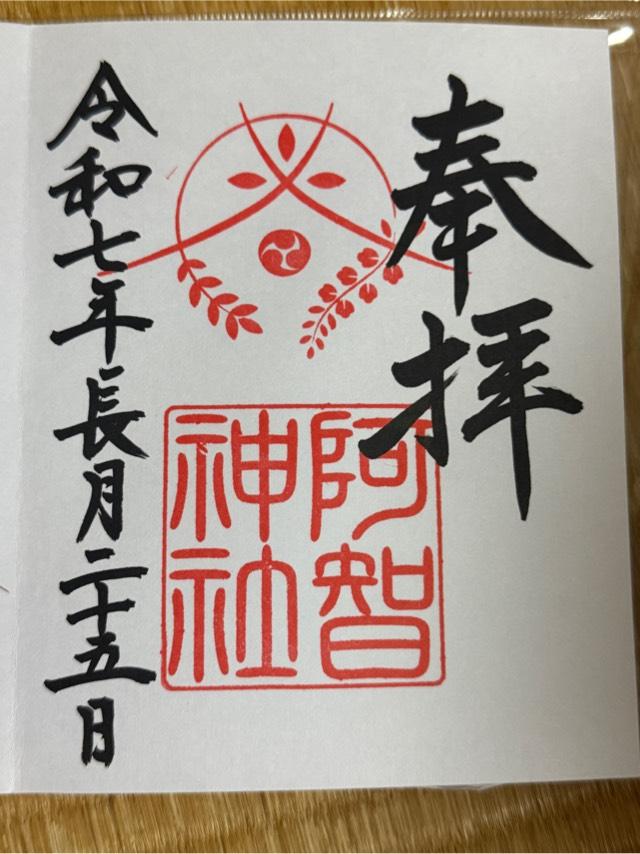 奉拝
阿智
神社
令和七年長月二十五日